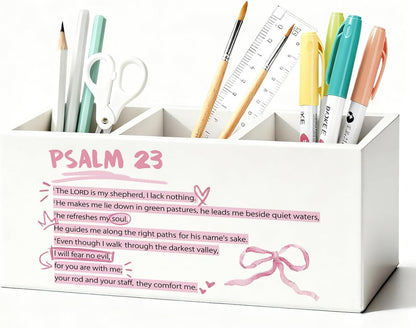 PSALM 23
The LORD is my shepherd, I lack nothing.
He makes me lie down in green pastures, he leads me beside quiet waters,
he refreshes my soul.
He guides me along the right paths for his name's sake.
Even though I walk through the darkest valley,
I will fear no evil,
for you are with me;
your rod and your staff, they comfort me.